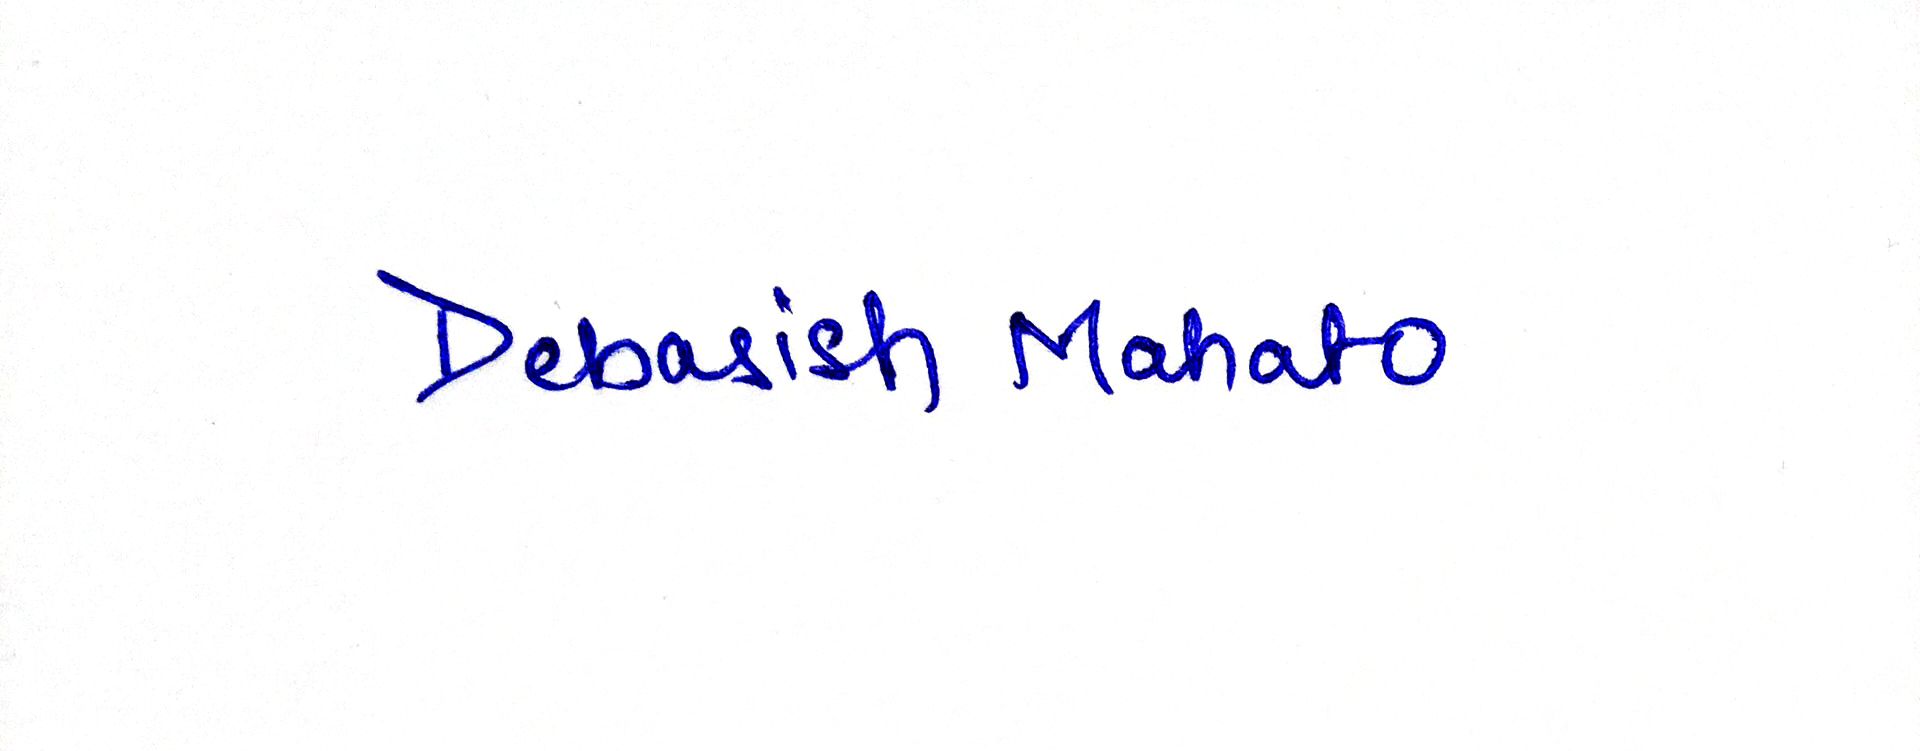 Debasish Mahato